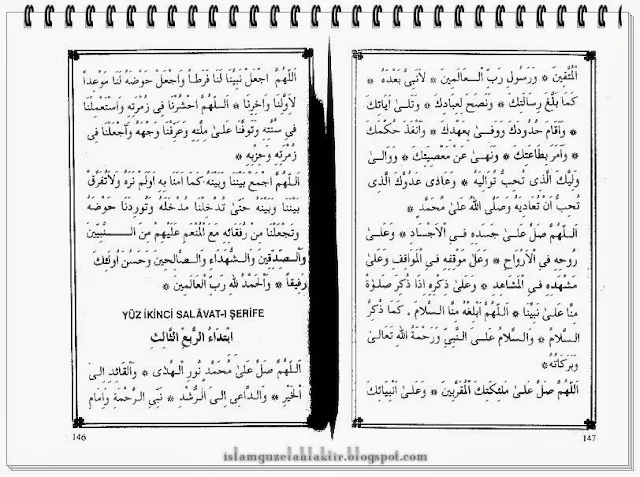 اَللّٰهُمَّ اجْعَلْ نَبِيَّنَا لَنَا فَرَطاً وَاجْعَلْ حَوْضَهُ لَنَا مَوْعِداً
لِاَوَّلِنَا وَاٰخِرِنَا * اَللّٰهُمَّ احْشُرْنَا فِى زُمْرَتِهِ وَاسْتَعْمِلْنَا
فِى سُنَّتِهِ وَتَوَفَّنَا عَلٰى مِلَّتِهِ وَعَرِّفْنَا وَجْهَهُ وَاجْعَلْنَا فِى
زُمْرَتِهِ وَحِزْبِهِ *
اَللّٰهُمَّ اجْمَعْ بَيْنَنَا وَبَيْنَهُ كَمَا اٰمَنَّا بِهِ وَلَمْ نَرَهُ وَلَاتُفَرِّقْ
بَيْنَنَا وَبَيْنَهُ حَتّٰى تُدْخِلَنَا مُدْخَلَهُ وَتُورِدَنَا حَوْضَهُ
وَتَجْعَلَنَا مِنْ رُفَقَائِهِ مَعَ الْمُنْعَمِ عَلَيْهِمْ مِنَ النَّبِيِّينَ
وَالصِّدِّقِينَ وَالشُّهَدَاءِ وَالصَّالِحِينَ وَحَسُنَ اُولٰئِكَ
رَفِيقاً * وَالْحَمْدُ لِلّٰهِ رَبِّ الْعَالَمِينَ *
YÜZ İKİNCİ SALÂVAT-I ŞERİFE
اِبْتِدَاءُ الرُّبْعِ الثَّالِثِ
اَللّٰهُمَّ صَلِّ عَلٰى مُحَمَّدٍ نُورِ الْهُدٰى * وَالْقَائِدِ اِلَى
الْخَيْرِ * وَالدَّاعِى اِلَى الرُّشْدِ * نَبِىِّ الرَّحْمَةِ وَاِمَامِ
146
الْمُتَّقِينَ * وَرَسُولِ رَبِّ الْعَالَمِينَ * لَانَبِىَّ بَعْدَهُ *
كَمَا بَلَّغَ رِسَالَتَكَ * وَنَصَحَ لِعِبَادِكَ * وَتَلٰى اٰيَاتِكَ
* وَاَقَامَ حُدُودَكَ وَوَفٰى بِعَهْدِكَ * وَاَنْفَذَ حُكْمَكَ
* وَاَمَرَ بِطَاعَتِكَ * وَنَهٰى عَنْ مَعْصِيَتِكَ * وَوَالٰى
وَلِيَّكَ الَّذِى تُحِبُّ تُوَالِيَهُ * وَعَادٰى عَدُوَّكَ الَّذِى
تُحِبُّ اَنْ تُعَادِيَهُ وَصَلَّى اللّٰهُ عَلٰى مُحَمَّدٍ *
اَللّٰهُمَّ صَلِّ عَلٰى جَسَدِهِ فِى الْاَجْسَادِ * وَعَلٰى
رُوحِهِ فِى الْاَرْوَاحِ * وَعَلٰى مَوْقِفِهِ فِى الْمَوَاقِفِ وَعَلٰى
مَشْهَدِهِ فِى الْمَشَاهِدِ * وَعَلٰى ذِكْرِهِ اِذَا ذُكِرَ صَلٰوةً
مِنَّا عَلٰى نَبِيِّنَا * اَللّٰهُمَّ اَبْلِغْهُ مِنَّا السَّلَامَ . كَمَا ذُكِرَ
السَّلَامُ * وَالسَّلَامُ عَلَى النَّبِىِّ وَرَحْمَةُ اللّٰهِ تَعَالٰى
وَبَرَكَاتُهُ *
اَللّٰهُمَّ صَلِّ عَلٰى مَلٰئِكَتِكَ الْمُقَرَّبِينَ * وَعَلٰى اَنْبِيَائِكَ
147
islamguzelahlaktir.blogspot.com